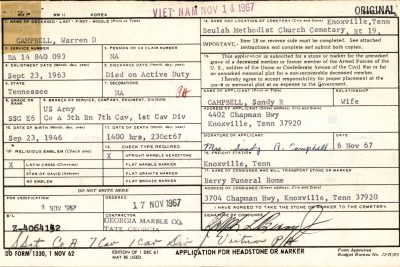 WW II KOREA VIET-NAM NOV 14 1967 ORIGINAL
1. NAME OF DECEASED - LAST - FIRST - MIDDLE (Print or Type)
CAMPBELL, Warren D
2. SERVICE NUMBER
RA 14 840 093
3. PENSION OR VA CLAIM NUMBER
NA
4. ENLISTMENT DATE (Month, day, year)
Sept 23, 1963
5. DISCHARGE DATE (Month, day, year)
Died on Active Duty
6. STATE
Tennessee
NA
8. GRADE OR
SSG E6
9. BRANCH OF SERVICE, COMPANY, REGIMENT, DIVISION
US Army
Co A 5th Bn 7th Cav, 1st Cav Div
10. DATE OF BIRTH (Month, day, year)
Sep 23, 1946
11. DATE OF DEATH (Month, day, year)
1400 hrs, 23Oct67
12. RELIGIOUS EMBLEM (Check one)
X LATIN CROSS (Christian)
STAR OF DAVID (Hebrew)
NO EMBLEM
CHECK TYPE REQUIRED
X UPRIGHT MARBLE HEADSTONE
FLAT MARBLE MARKER
FLAT GRANITE MARKER
FLAT BRONZE MARKER
DO NOT WRITE HERE
FOR VERIFICATION
9 NOV 1967
ORDERED
17 NOV 1967
B/L NUMBER
Z-4064142
CONTRACTOR
GEORGIA MARBLE CO.
TATE GEORGIA
S Sgt Co A 7 Cav 1 Cav Div Vietnam PH
14. NAME AND LOCATION OF CEMETERY (City and State)
Knoxville, Tenn
Beulah Methodist Church Cemetery, Rt 19,
IMPORTANT: Item 18 on reverse side must be completed. See attached
instructions and complete and submit both copies.
This application is submitted for a stone or marker for the unmarked
grave of a deceased member or former member of the Armed Forces of the
U. S., soldier of the Union or Confederate Armies of the Civil War or for
an unmarked memorial plot for a non-recoverable deceased member.
I hereby agree to accept responsibility for proper placement at the
grave or memorial plot at no expense to the Government.
CAMPBELL, Sandy R
Wife
4402 Chapman Hwy
Knoxville, Tenn 37920
SIGNATURE OF APPLICANT
Mrs. Sandy R. Campbell
DATE
6 Nov 67
16. FREIGHT STATION
Knoxville, Tenn
17. NAME OF CONSIGNEE WHO WILL TRANSPORT STONE OR MARKER
Berry Funeral Home
3704 Chapman Hwy, Knoxville, Tenn 37920
I HAVE AGREED TO TAKE THE STONE OR MARKER TO THE CEMETERY.
SIGNATURE OF CONSIGNEE
DD FORM 1330, 1 NOV 62
EDITION OF 1 DEC 61
MAY BE USED.
APPLICATION FOR HEADSTONE OR MARKER
Form Approved
Budget Bureau No.